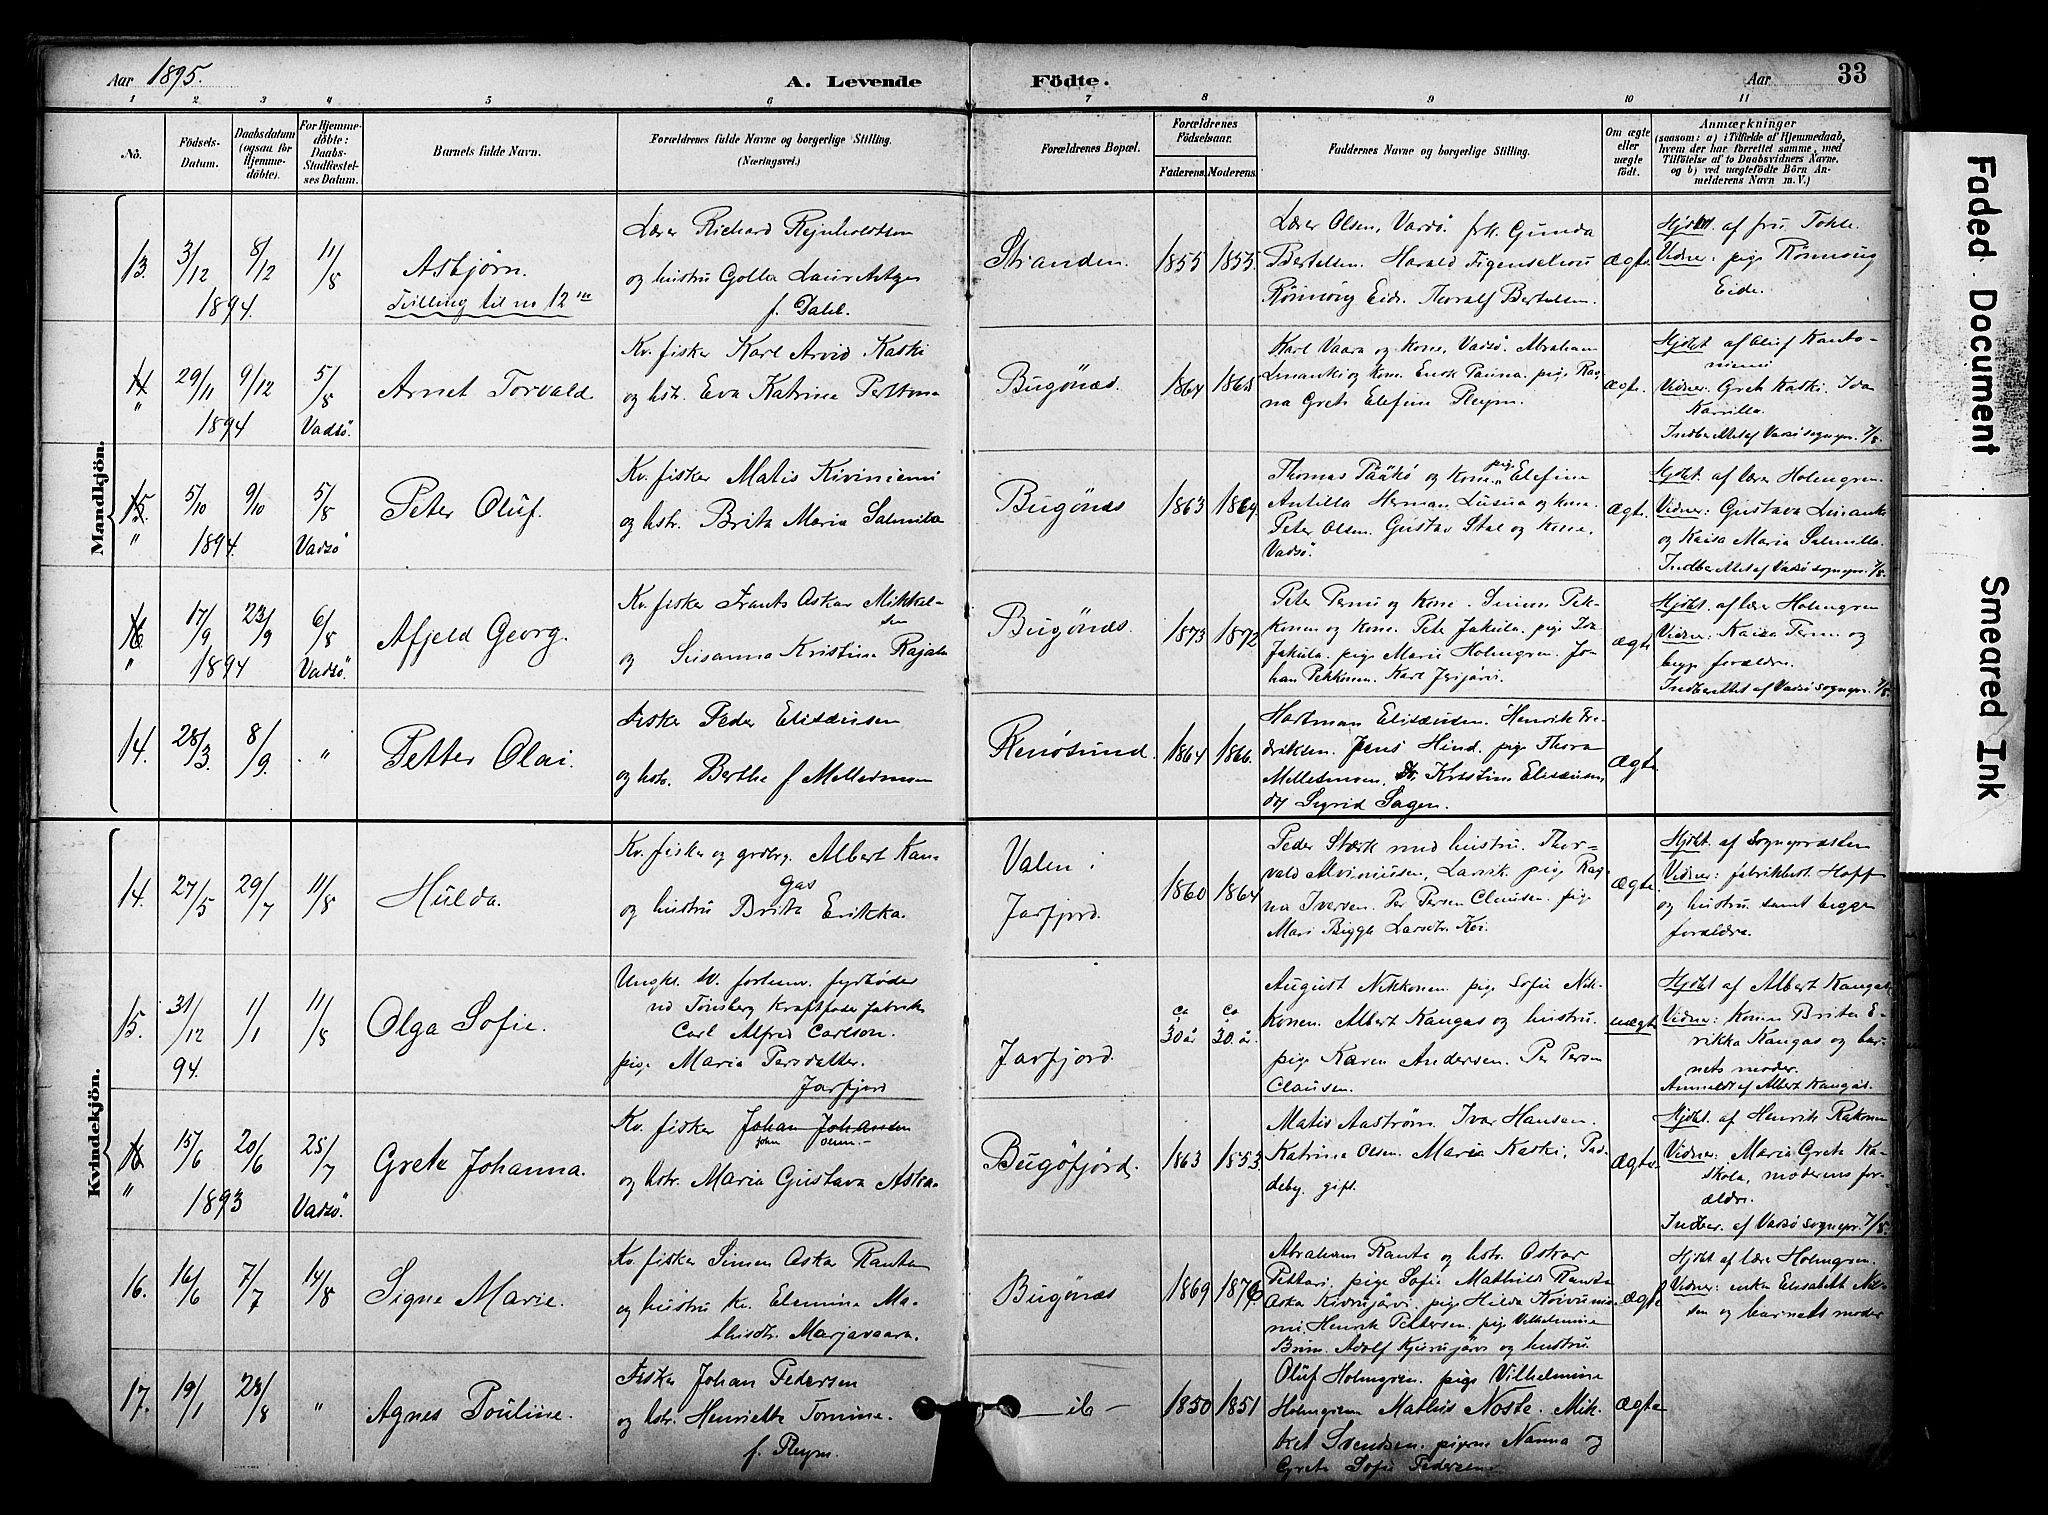 Aar 1895.
A. Levende Födte.
Aar 33
1 2 3 4 5 6 7 8 9 10 11
No.
Födsels-Datum.
Daabsdatum (ogsaa for Hjemme-döbte).
For Hjemme-döbte: Daabs-Stadfæstel-ses Datum.
Barnets fulde Navn.
Forældrenes fulde Navne og borgerlige Stilling.
(Næringsvei.)
Forældrenes Bopæl.
Forældrenes Födselsaar.
Faderens. Moderens.
Faddernes Navne og borgerlige Stilling.
Om ægte eller uægte födt.
Anmærkninger
(saasom: a) i Tilfælde af Hjemmedaab,
hvem der har forrettet samme, med
Tilföielse af to Daabsvidners Navne.
og b) ved uægtefödte Börn An-
melderens Navn m. V.)
Mandkjön.
13. 3/12 8/12 11/8
1894.
Asbjørn.
Tvilling til no 12
Lærer Richard Rejnholdtsen
og hustru Golla Laur
f. Dahl.
Stranden. 1855 1855
Lærer Olsen, Vadsö frk. Gunda
Bertelsen. Harald Figenschou
Rönnaug Eide. Thoralf Bertelsen.
ægte
Hjdbt. af fru Tokle
Vidner: pige Rönnaug
Eide.
14 29/11 9/12 5/8
" 1894 Vadsö
Arnet Torvald
Kv. fisker Karl Arvid Kaski
og hstr. Eva Katrina
Bugönæs. 1864 1865
Karl Vaara og kone, Vadsö. Abraham
Linanki og kone. pige Rag-
na Grete Elefine Reym.
ægte.
Hjdbt. af Oluf Kanto-
niemi
Vidner: Grete Kaski. Ida
Karvilla.
Indberettet af Vadsö sognepr. 7/8.
15. 5/10 9/10 5/8
" 1894. Vadsö
Peter Oluf.
Kv. fisker Matis Kiviniemi
og hstr. Brita Maria Salmila
Bugönæs 1863 1869
Thomas Pääkö og kone pige Elefine
Antilla Herman Lusua og kone
Peter Olsen. Gustav Stal og kone,
Vadsö.
ægte.
Hjdbt. af lærer Holmgren.
Vidner: Gustava Linanki
og Kaisa Maria Salmilla.
Indberettet af Vadsö sognepr. 7/8.
16 17/9 23/9 6/8
" 1894 Vadsö
Afjeld Georg.
Kv. fisker Frants Oskar Mikkel-
sen
og Susanna Kristine Rajala
Bugönæs. 1873 1872
Peter Pernu og kone. Simon Pek-
konen og kone. Peter Jakula. pige Ida
Jakula. pige Marie Holmgren. Jo-
han Pekkonen. Karl Jerijärvi.
ægte
Hjdbt. af lærer Holmgren
Vidner: Kaisa Pernu og
begge forældre.
Indberettet af Vadsö sognepr. 7/8.
14. 28/3 8/9. "
Petter Olai.
Fisker Peder Elisæusen
og hstr. Berthe f Mellesmoen
Renösund. 1864 1866.
Hartman Elisæusen. Henrik Fre-
driksen. Jens Hind. pige Thora
Mellesmoen. Kristine Elisæusen,
og Sigrid Sagen.
ægte
Kvindekjön.
14. 27/5 29/7 11/8
Hulda.
Kv. fisker og grdbrg. Albert Kan-
gas
og hustru Brita Erikka.
Valen i
Jarfjord. 1860 1864
Peder Stærk med hustru. Thor-
vald Alvinusen, Larvik. pige Rag-
na Iversen. Per Persen Clausen. pige
Mari Bigga Larsdtr. Koi.
ægte
Hjdbt. af Sognepræsten
Vidner: fabrikbest. Hoff
og hustru samt begge
forældre.
15. 31/12 1/1 11/8
94.
Olga Sofie.
Ungkl. forhenv. fyrböder
ved Tönsberg Kraftfoder fabrik
Carl Alfred Carlson.
pige Maria Persdatter.
Jarfjord
Jarfjord. ca 30 år ca 30. år.
August Nikkonen pige Sofie Nik-
konen. Albert Kangas og hustru.
pige Karen Andersen. Per Persen
Clausen.
uægte
Hjdbt af Albert Kangas
Vidner: Konen Brita E-
rikka Kangas og bar-
nets moder.
Anmeldt af Albert Kangas.
16 15/6 20/6 25/7
" 1893 Vadsö.
Grete Johanna.
Kv. fisker Johan Johansen
og hstr. Maria Gustava Aska-
Bugöfjord. 1863 1853
Matis Aaström. Ivar Hansen.
Katrina Olsen. Maria Kaski, Pad-
deby. gift.
ægte
Hjdbt. af Henrik Rakonen
Vidner: Maria Grete Ka-
skola, moderens for-
ældre.
Indber. af Vadsö sognepr. 7/8.
16. 16/6 7/7 14/8
Signe Marie.
Kv. fisker Simon Aska Ranta
og hustru kv. Elamina Ma-
thisdtr. Marjavaara.
Bugönæs 1869 1876
Abraham Ranta og hstr. Oskar
Pettari. pige Sofie Mathilde Ranta
Aska Kivujärvi. pige Hilda Koivunie-
mi. Henrik Pettersen. pige Vilhelmine
Brun. Adolf Kjurujärvi og hustru
ægte
Hjdbt af lærer Holmgren.
Vidner: enke Elisabett
sen og barnets moder
17. 19/1 28/8 "
Agnes Pouline.
Fisker Johan Pedersen
og hstr. Henriette Tomine.
f. Reym.
— ib — 1850 1851
Oluf Holmgren. pige Vilhelmine
Holmgren Mathis Noste. Mik-
kel Svendsen. pigerne Nanna og
Grete Sofie Pedersen.
ægte
Faded Document
Smeared Ink